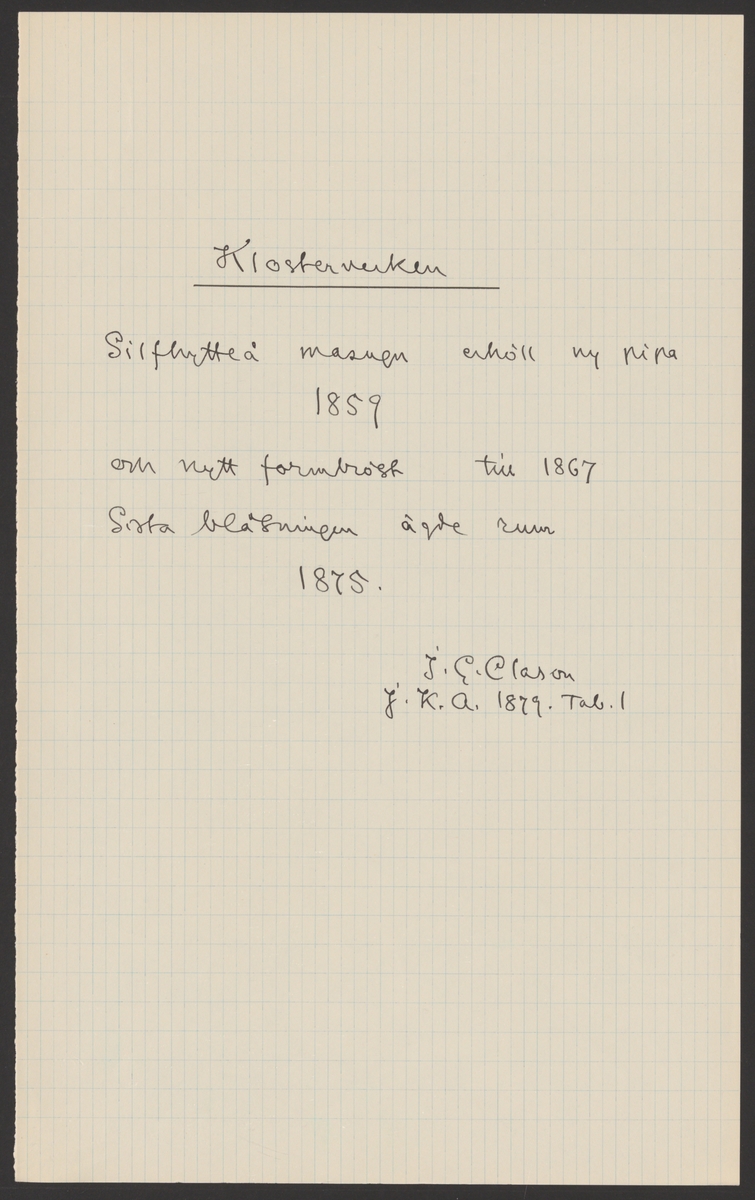 Klosterverken
Silfhytteå masugn erhöll ny pipa
1859
och nytt formbröst till 1867
Sista blåsningen ägde rum
1875.
J. G. Clason
J. K. A. 1879. Tab. 1